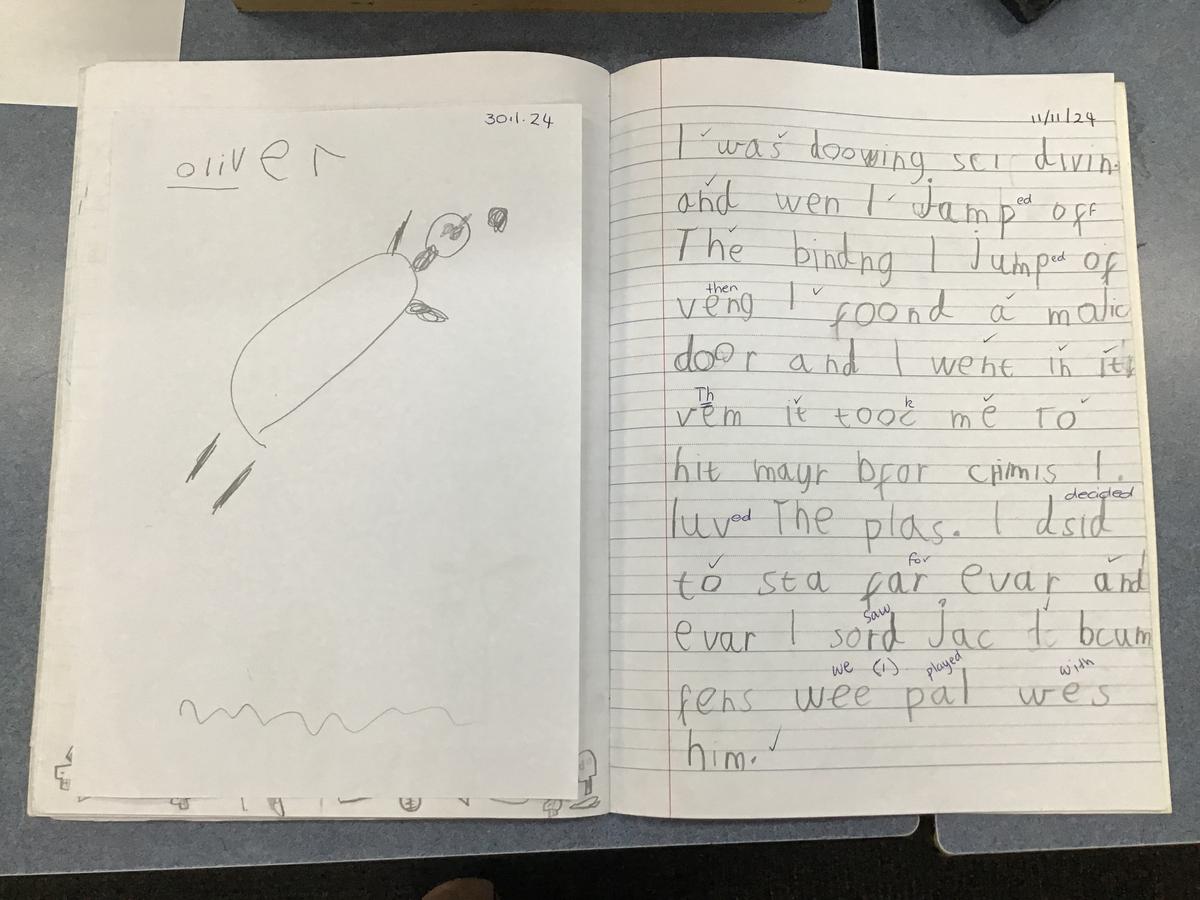 30.1.24
oliver
11/11/24
I was doowing sci divin.
and wen I Jamp ed off
The bindng I Jump ed of
then
veng I foond a malic
door and I went in it
Th k
vem it tooc me To
hit mayr bfor crimis I.
decided
luv ed The plas. I dsid
for
to sta far evar and
saw
evar I sord jac t bcum
we (i) played with
fens wee pal wes
him.